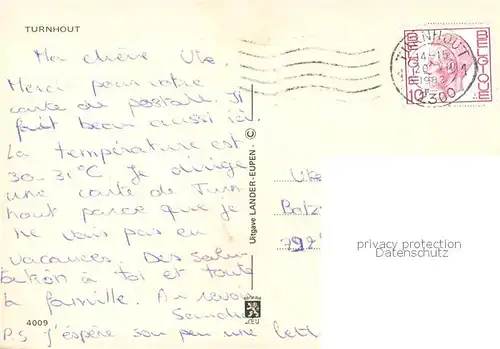 TURNHOUT
Ma chère Ute.
Merci pour votre
carte de postale. Il
fait beau aussi ici.
La température est
30-31°C. Je dirige
une carte de Turn
hout parce que je
ne vais pas en
vacances. Des
à toi et toute
la famille. Au revoir
P.S j'espère peu une
4009
Uitgave LANDER-EUPEN - ©
BELGIE BELGIQUE
10F
TURNHOUT
14-15
1982
2300
Ute
privacy protection
Datenschutz